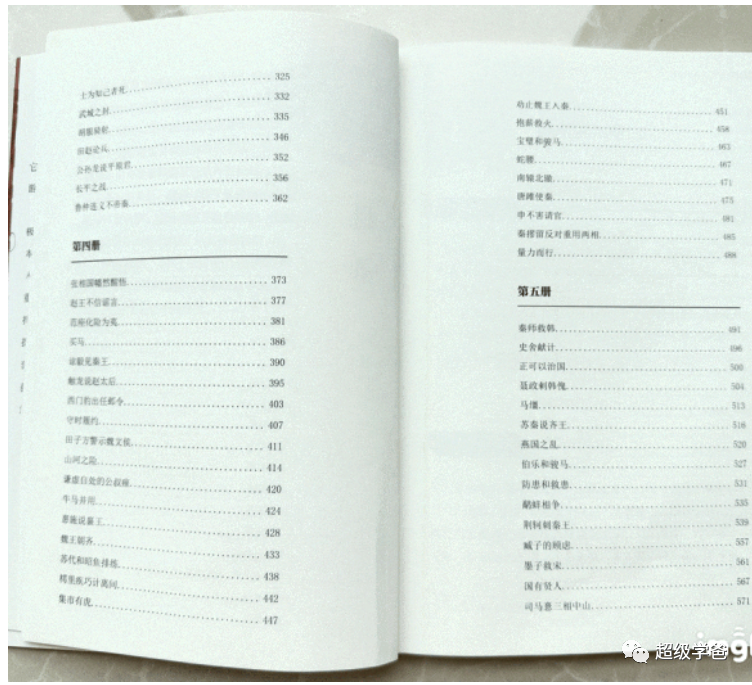 士为知己者死 325
武城之封 332
胡服骑射 335
田赵论兵 346
公孙龙说平原君 352
长平之战 356
鲁仲连义不帝秦 362
第四册
张相国幡然醒悟 373
赵王不信谣言 377
范座化险为夷 381
买马 386
谅毅见秦王 390
触龙说赵太后 395
西门豹出任邺令 403
守时履约 407
田子方警示魏文侯 411
山河之险 414
谦虚自处的公叔痤 420
牛马并用 424
惠施说襄王 428
魏王朝齐 433
苏代和昭鱼排练 438
樗里疾巧计离间 442
集市有虎 447
劝止魏王入秦 451
抱薪救火 458
宝璧和骏马 463
蛇腰 467
南辕北辙 471
唐雎使秦 475
申不害请官 481
秦摎留反对重用两相 485
量力而行 488
第五册
秦师救韩 491
史舍献计 496
正可以治国 500
聂政刺韩傀 504
马缰 513
苏秦说齐王 516
燕国之乱 520
伯乐和骏马 527
防患和救患 531
鹬蚌相争 535
荆轲刺秦王 539
臧子的顾虑 557
墨子救宋 561
国有贤人 567
司马憙三相中山 571
它
根
本
超级学爸